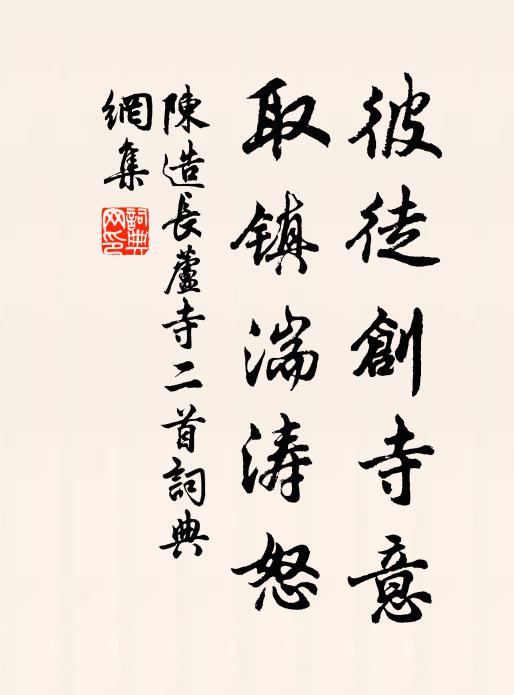 彼徒創寺意
取镇湍涛怒
陳造長蘆寺二首詞典
網集
詞典
网印